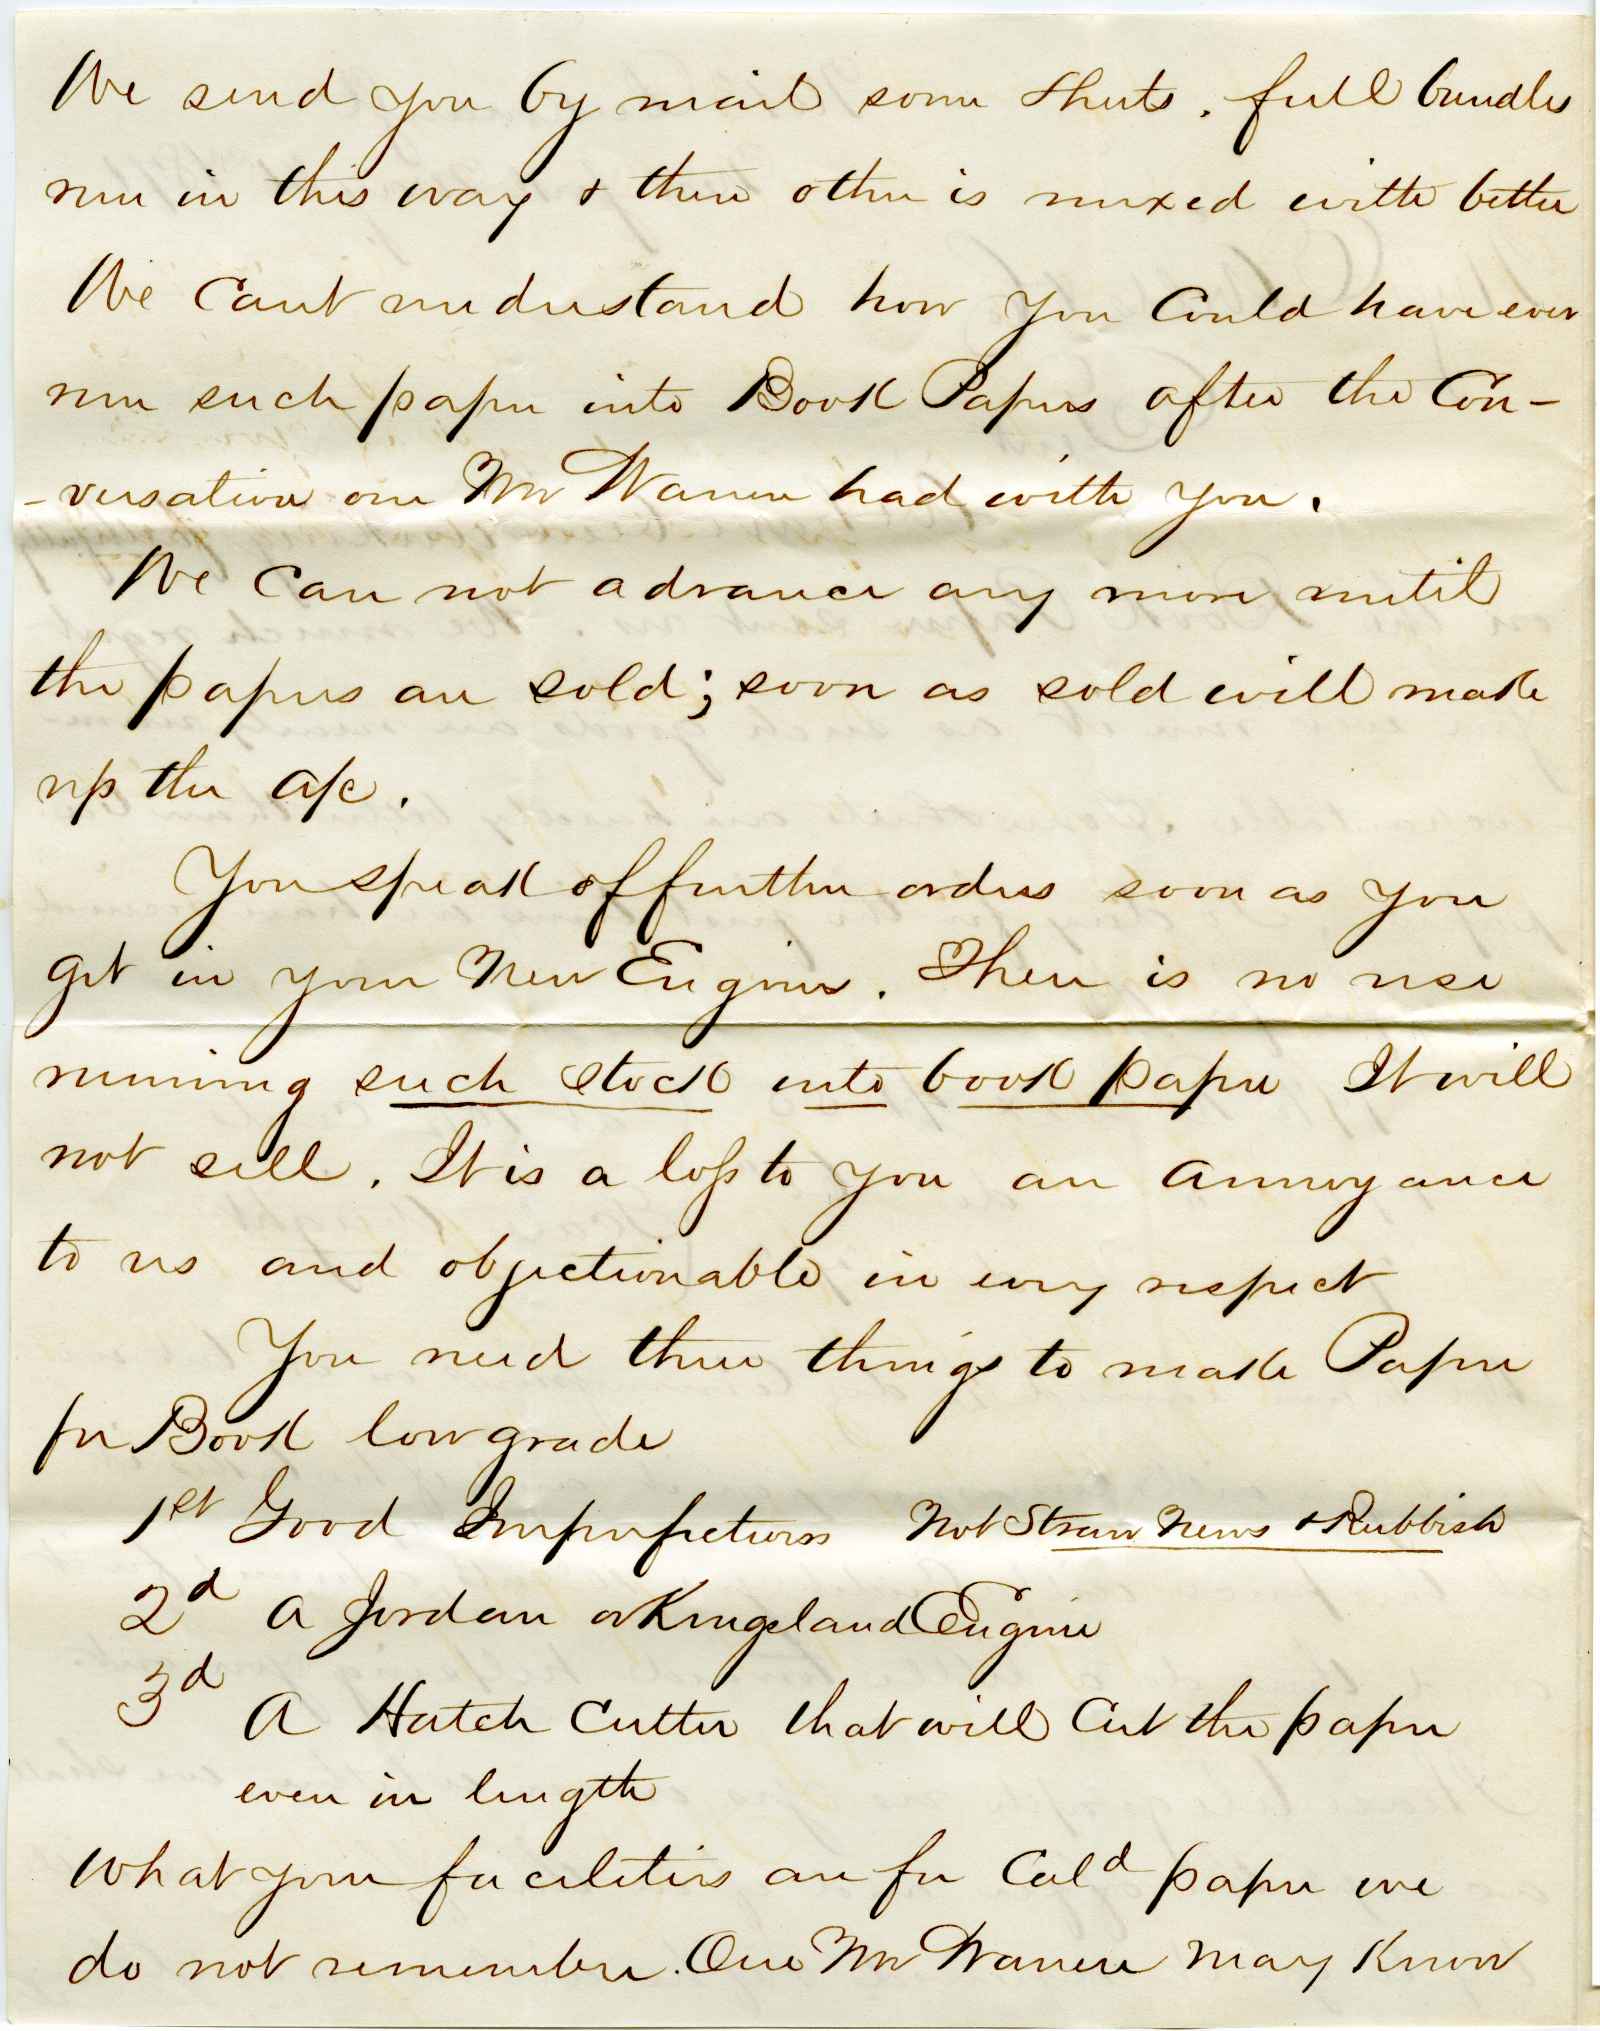 We send you by mail some Sheets. full bundles
run in this way & then other is mixed with better
We Cant understand how you Could have ever
run such paper into Book Papers after the Con-
-versation our Mr Warren had with you.
We Can not advance any more until
the papers are sold; soon as sold will make
up the a/c.
You speak of further orders soon as you
get in your New Engine. There is no use
running such stock into book paper It will
not sell. It is a loss to you an annoyance
to us and objectionable in every respect
You need three things to make Paper
for Book low grade
1st Good Imperfections Not Straw News & Rubbish
2d A Jordan or Kingsland Engine
3d A Hatch Cutter that will Cut the paper
even in length
What your facilities are for Cold paper we
do not remember. Our Mr Warren may Know